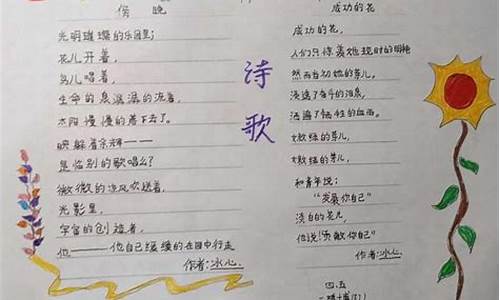 傍晚
光明璀璨的乐园里;
花儿开着,
鸟儿唱着,
生命的泉潺潺的流着,
太阳慢慢的落下去了。
映躲着余辉——
是临别的歌唱么?
微微的凉风吹送着,
光影里,
宇宙的创造者,
他——他自己缓缓的在园中行走
作者:冰心.
诗歌
成功的花
成功的花,
人们只惊羡她现时的明艳
然而当初她的芽儿,
浸透了奋斗的泪泉,
洒遍了牺牲的血雨。
嫩绿的芽儿,
嫩绿的芽儿,
和青年说:
"发展你自己"
淡白的花儿,
他说:"贡献你自己"
作者:冰心.
四.五